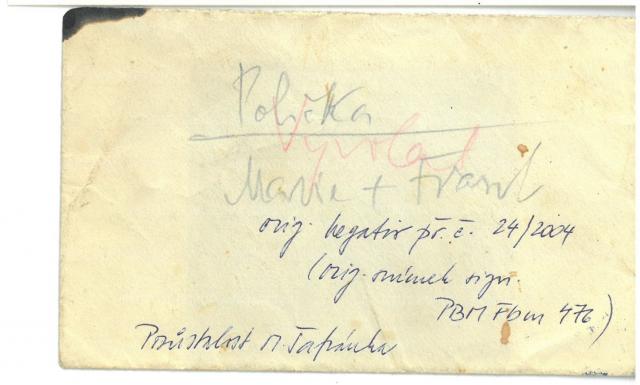 Polička
Vyvolat
Marie + Frant
orig. negativ př. č. 24/2004
(orig. snímek sign.
PBM Fbm 476)
Pozůstalost M. Šafránka